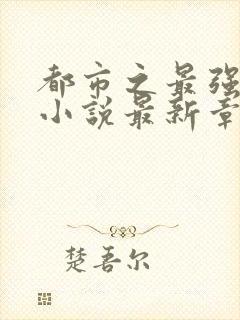 都市之最强
小说最新章
楚吾尔